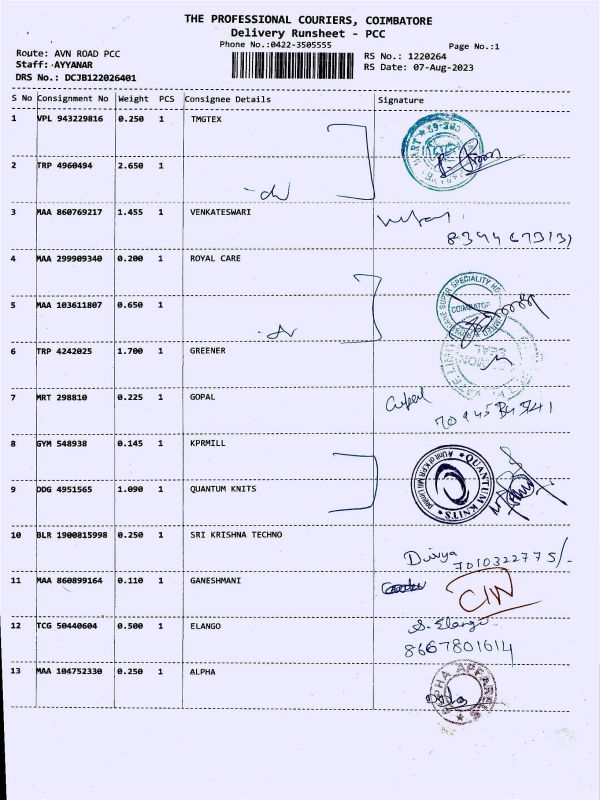 THE PROFESSIONAL COURIERS, COIMBATORE
Delivery Runsheet - PCC
Phone No.:0422-3505555
Page No.:1
Route: AVN ROAD PCC
RS No.: 1220264
Staff: AYYANAR
RS Date: 07-Aug-2023
DRS No.: DCJB122026401
S No Consignment No Weight PCS Consignee Details Signature
1 VPL 943229816 0.250 1 TMGTEX
2 TRP 4960494 2.650 1
3 MAA 860769217 1.455 1 VENKATESWARI
4 MAA 299909340 0.200 1 ROYAL CARE
5 MAA 103611807 0.650 1
COIMBATORE
6 TRP 4242025 1.700 1 GREENER
7 MRT 298810 0.225 1 GOPAL
8 GYM 548938 0.145 1 KPRMILL
QUANTUM KNITS
9 DDG 4951565 1.090 1 QUANTUM KNITS
10 BLR 1900815998 0.250 1 SRI KRISHNA TECHNO
Divya
7010322775/-
11 MAA 860899164 0.110 1 GANESHMANI
12 TCG 50440604 0.500 1 ELANGO
S. Elango
8667801614
13 MAA 104752330 0.250 1 ALPHA